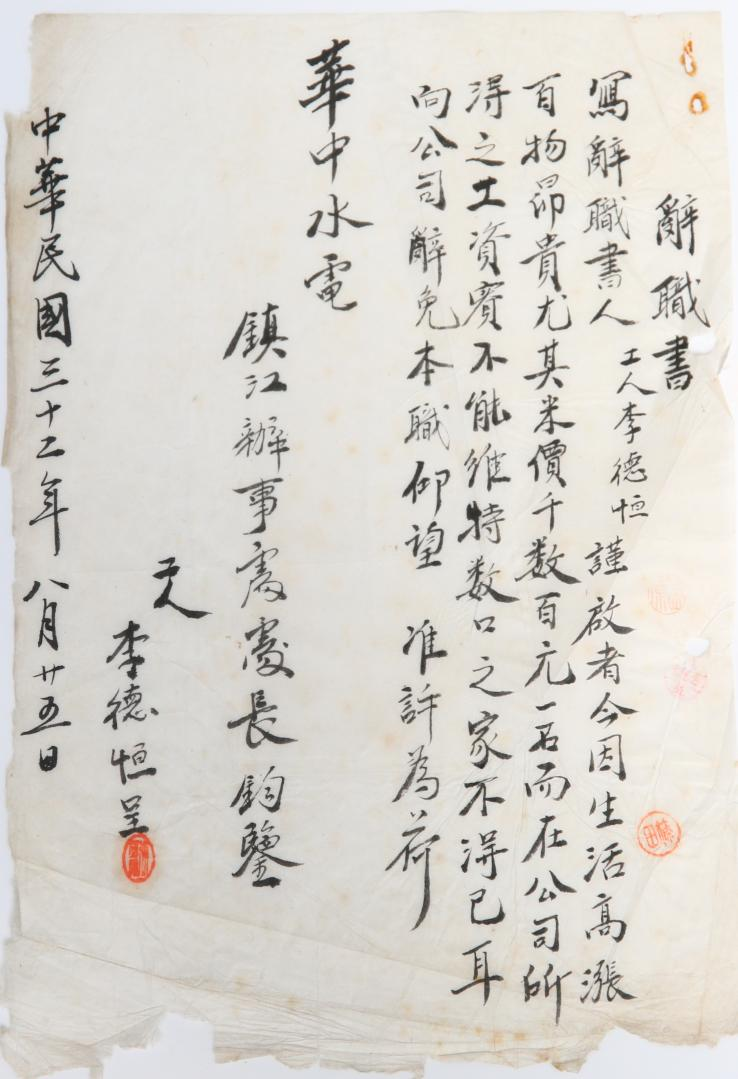 辭職書
寫辭職書人工人李德恒謹啟者今因生活高漲
百物昂貴尤其米價千数百元一石而在公司所
得之工資實不能維持数口之家不得已耳
向公司辭免本職仰望 准許為荷
華中水電
鎮江辦事處處長鈞鑒
工人李德恒呈
中華民國三十二年八月廿五日